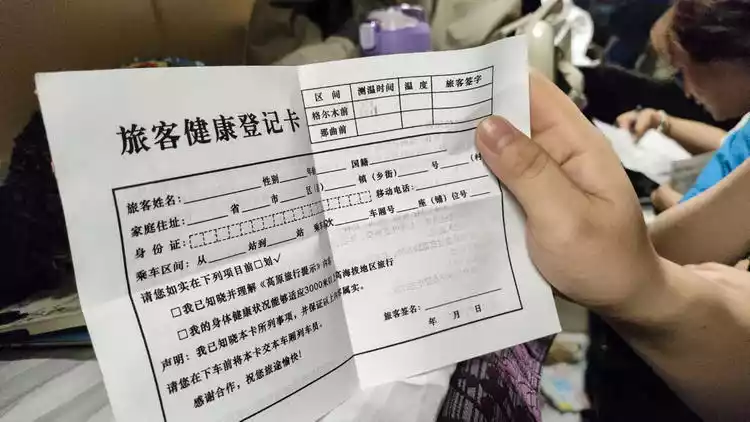 旅客健康登记卡
区间 测温时间 温度 旅客签字
格尔木前
那曲前
旅客姓名：______性别___年龄___国籍______
家庭住址：______省____市____区(县)____镇(乡街)____号____(村
身份证：□□□□□□□□□□□□□□□□□□移动电话：______
乘车区间：从____站到____站 乘____次____车厢号____座(铺)位号____
请您如实在下列项目前□划√
□我已知晓并理解《高原旅行提示》内容
□我的身体健康状况能够适应3000米以上高海拔地区旅行
声明：我已知晓本卡所列事项，并保证以上内容属实。
旅客签名：______
年 月 日
请您在下车前将本卡交本车厢列车员。
感谢合作，祝您旅途愉快！